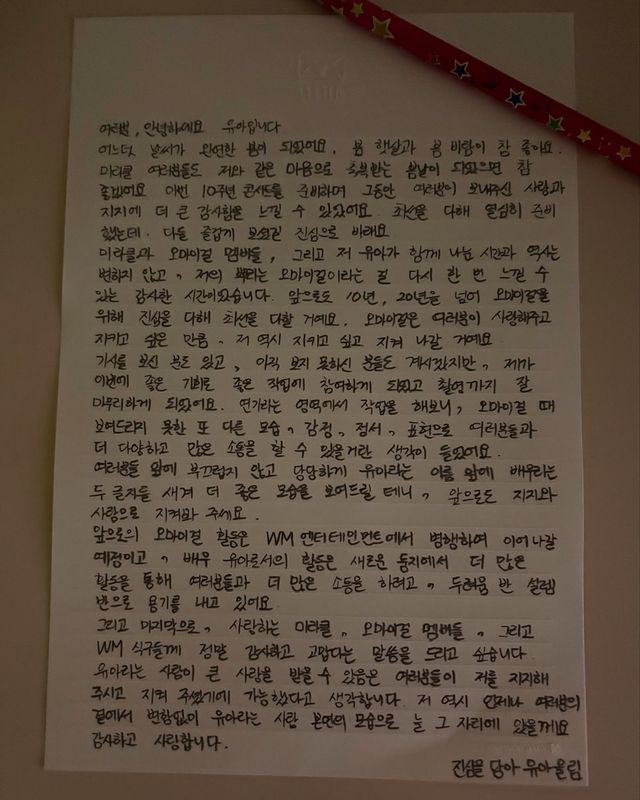 여러분, 안녕하세요 유아입니다
어느덧 날씨가 완연한 봄이 되었어요, 봄 햇살과 봄 바람이 참 좋아요.
미라클 여러분들도 저와 같은 마음으로 축복받는 봄날이 되었으면 참
좋겠어요 이번 10주년 콘서트를 준비하며 그동안 여러분이 보내주신 사랑과
지지에 더 큰 감사함을 느낄 수 있었어요. 최선을 다해 열심히 준비
했는데. 다들 즐겁게 보셨길 진심으로 바래요
미라클과 오마이걸 멤버들, 그리고 저 유아가 함께 나눈 시간과 역사는
변하지 않고, 저의 뿌리는 오마이걸이라는 걸 다시 한 번 느낄 수
있는 감사한 시간이였습니다. 앞으로도 10년, 20년을 넘어 오마이걸을
위해 진심을 다해 최선을 다할 거예요. 오마이걸은 여러분이 사랑해주고
지키고 싶은 만큼, 저 역시 지키고 싶고 지켜 나갈 거예요
기사를 보신 분도 있고, 아직 보지 못하신 분들도 계시겠지만, 제가
이번에 좋은 기회로 좋은 작업에 참여하게 되었고 촬영까지 잘
마무리하게 되었어요. 연기라는 영역에서 작업을 해보니, 오마이걸 때
보여드리지 못한 또 다른 모습, 감정, 정서, 표현으로 여러분들과
더 다양하고 많은 소통을 할 수 있을거란 생각이 들었어요.
여러분들 앞에 부끄럽지 않고 당당하게 유아라는 이름 앞에 배우라는
두 글자를 새겨 더 좋은 모습을 보여드릴 테니, 앞으로도 지지와
사랑으로 지켜봐 주세요.
앞으로의 오마이걸 활동은 WM 엔터테인먼트에서 병행하여 이어나갈
예정이고, 배우 유아로서의 활동은 새로운 둥지에서 더 많은
활동을 통해 여러분들과 더 많은 소통을 하려고, 두려움 반 설렘
반으로 용기를 내고 있어요.
그리고 마지막으로, 사랑하는 미라클, 오마이걸 멤버들, 그리고
WM 식구들께 정말 감사하고 고맙다는 말씀을 드리고 싶습니다.
유아라는 사람이 큰 사랑을 받을 수 있음은 여러분들이 저를 지지해
주시고 지켜 주셨기에 가능했다고 생각합니다. 저 역시 언제나 여러분의
곁에서 변함없이 유아라는 사람 본연의 모습으로 늘 그 자리에 있을게요
감사하고 사랑합니다.
진심을 담아 유아올림